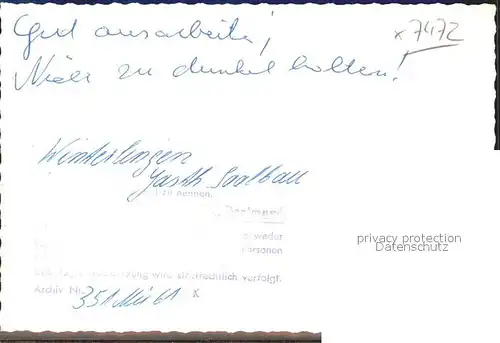 Gut ausarbeiten,
x 7472
Nicht zu dunkel halten!
Winterlingen
Gasth. Saalbau
zu nennen.
Dortmund
weder
ersonen
wird strafrechtlich verfolgt.
Archiv Nr. 351 Mü 61 K
privacy protection
Datenschutz